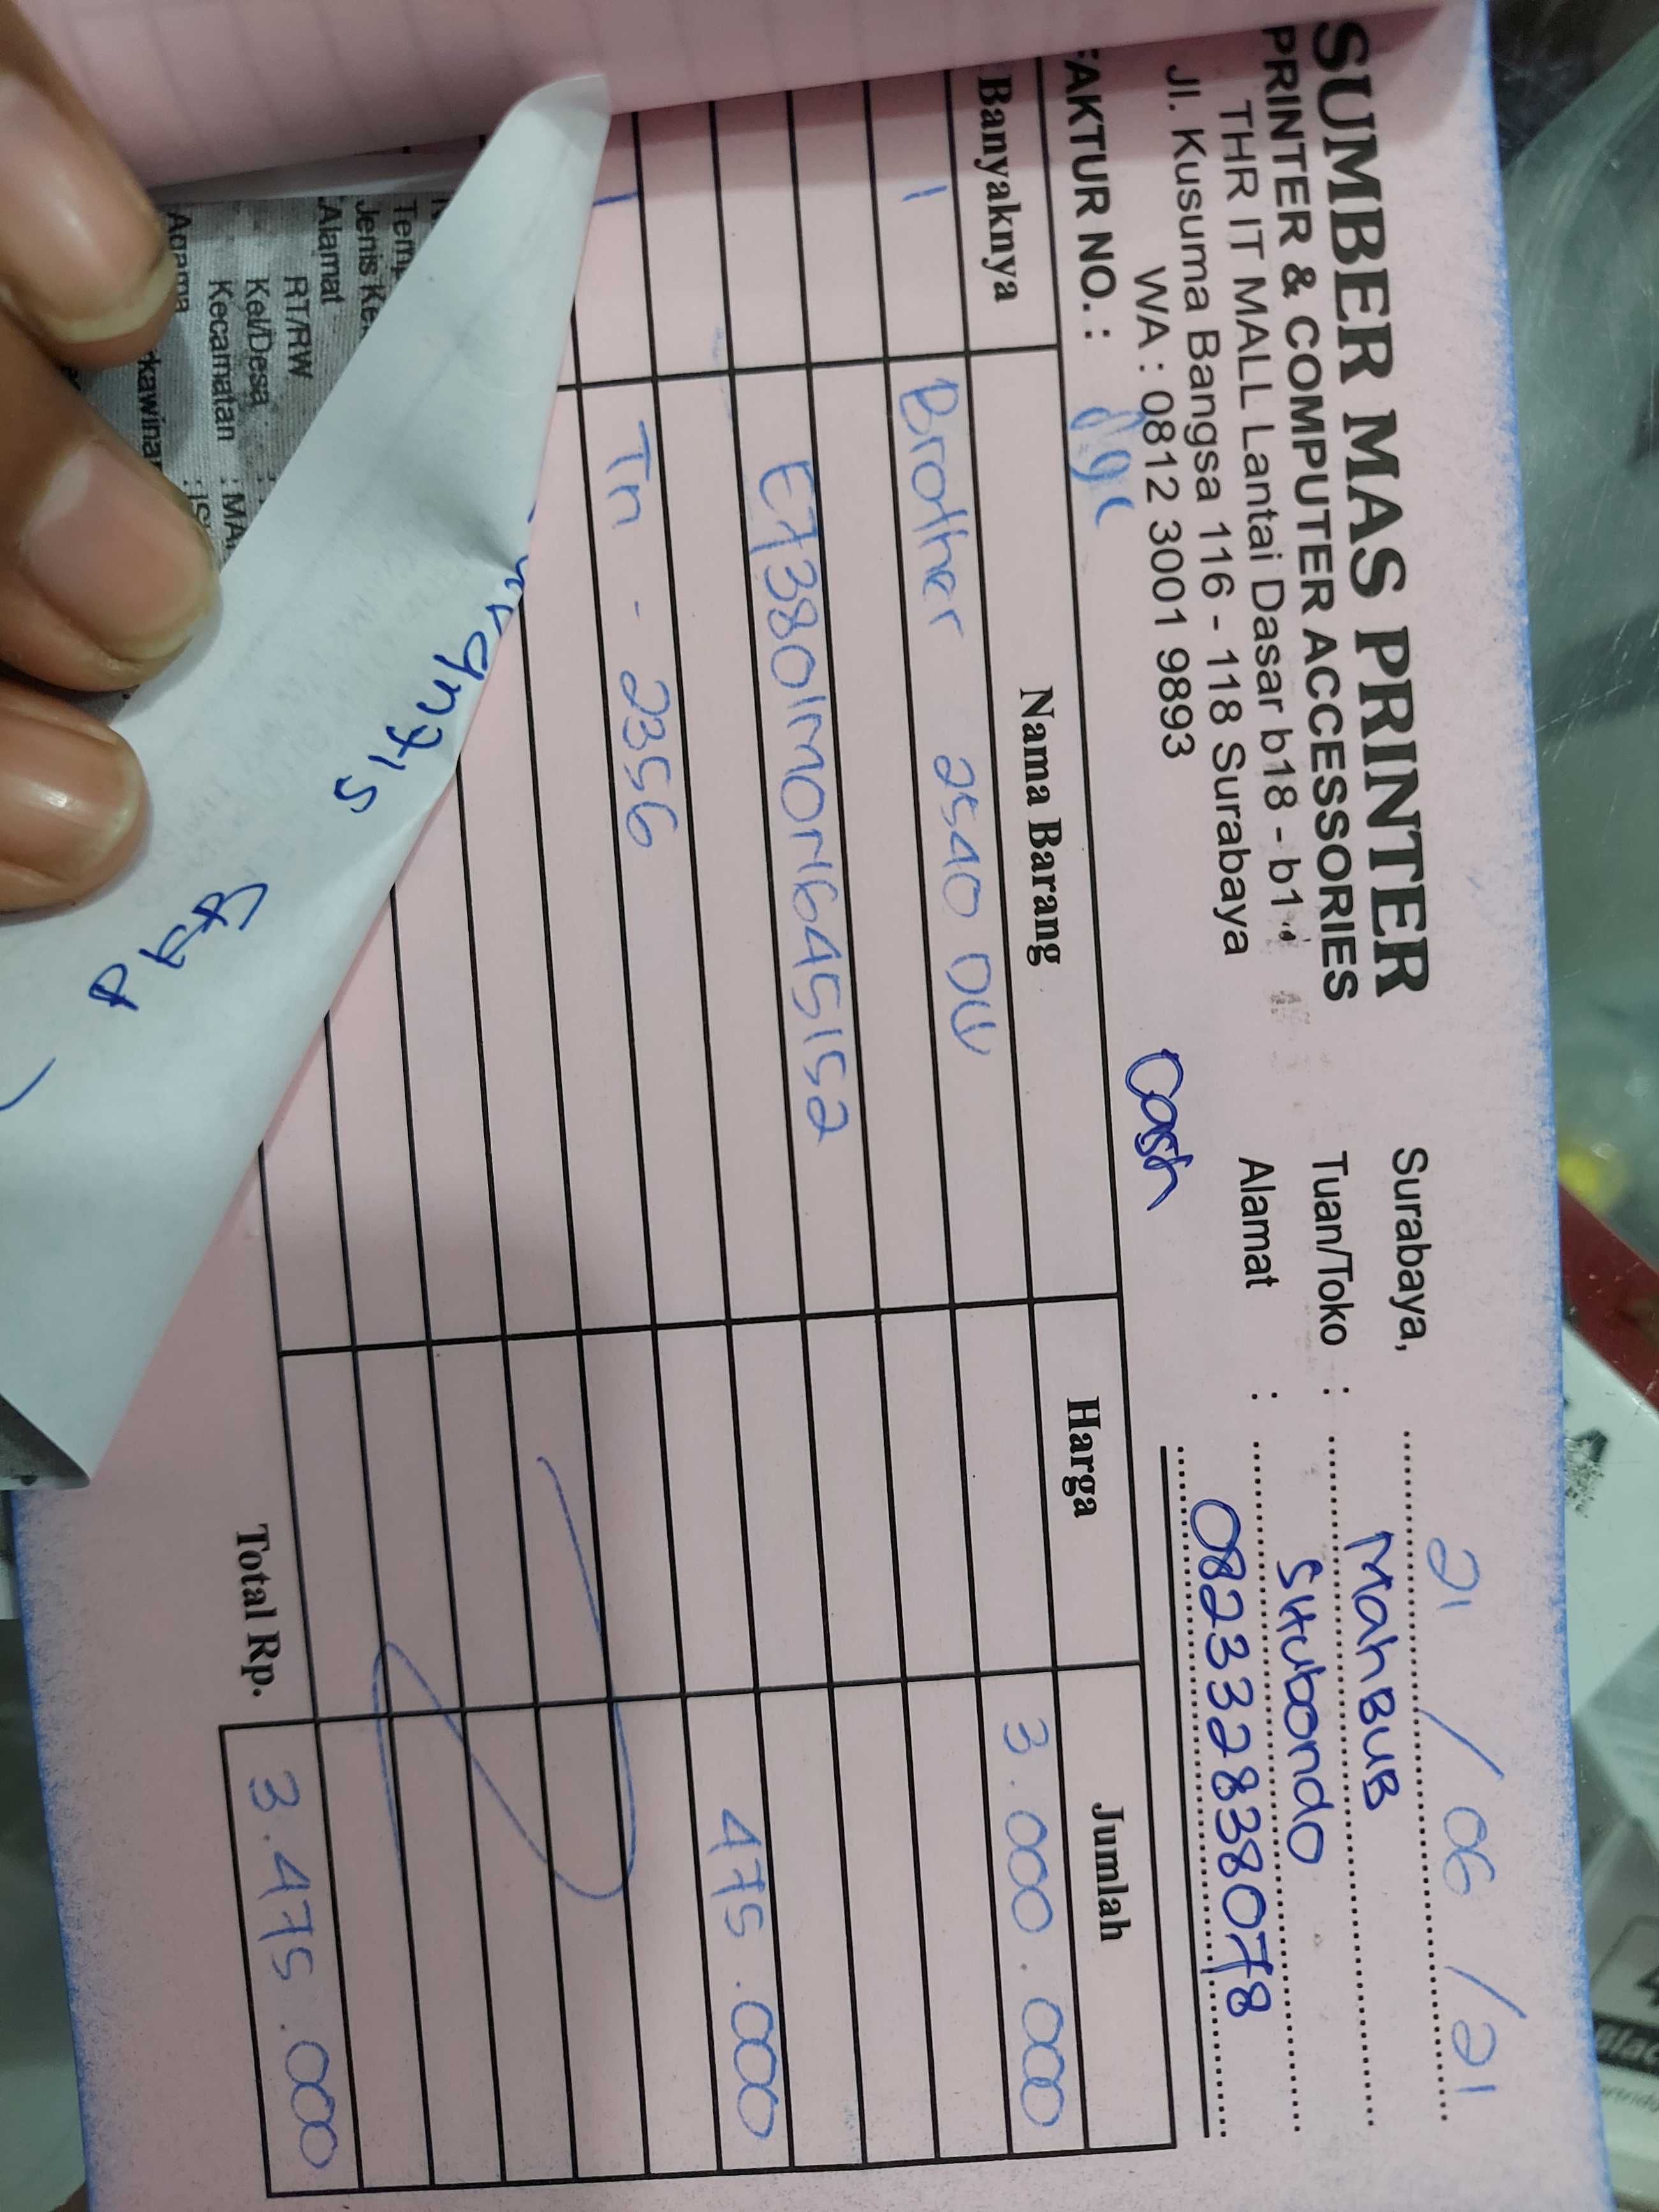 SUMBER MAS PRINTER
PRINTER & COMPUTER ACCESSORIES
THR IT MALL Lantai Dasar b18 - b1
Jl. Kusuma Bangsa 116 - 118 Surabaya
WA : 0812 3001 9893
Surabaya, 21 / 06 / 21
Tuan/Toko : MahBuB
Alamat : Situbondo
082332838078
FAKTUR NO. :
Cash
Banyaknya Nama Barang Harga Jumlah
1 Brother 2540 DW 3.000.000
E73801M0N1645152
1 Tn - 2356 475.000
Total Rp. 3.475.000
Jenis Ke
Alamat
RT/RW
Kel/Desa
Kecamatan : MA
Agama : IS